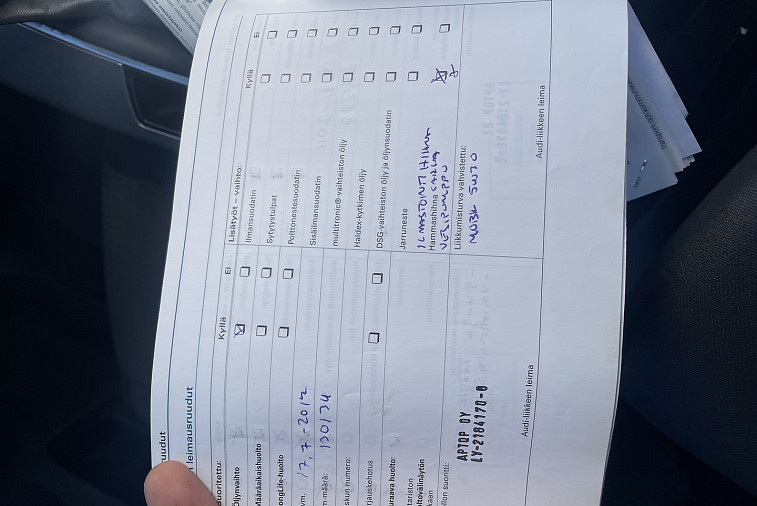 uudut
leimausruudut
Suoritettu:
Kyllä
Ei
Öljynvaihto
Määräaikaishuolto
ongLife-huolto
vm.
17.7-2012
m-määrä:
130134
skun numero:
rjauskehotus
uraava huolto:
tariston
oltovälinäytön
kaan
llon suoritti:
APTOP OY
LY-2184170-0
Audi-liikkeen leima
Lisätyöt – vaihto:
Kyllä
Ei
Ilmansuodatin
Sytytystulpat
Polttonestesuodatin
Sisäilmansuodatin
multitronic®-vaihteiston öljy
Haldex-kytkimen öljy
DSG-vaihteiston öljy ja öljynsuodatin
Jarruneste
ILMASTOINTI HIHNA
Hammashihna
VESIPUMPPU
Liikkumisturva vahvistettu:
5W30
Audi-liikkeen leima